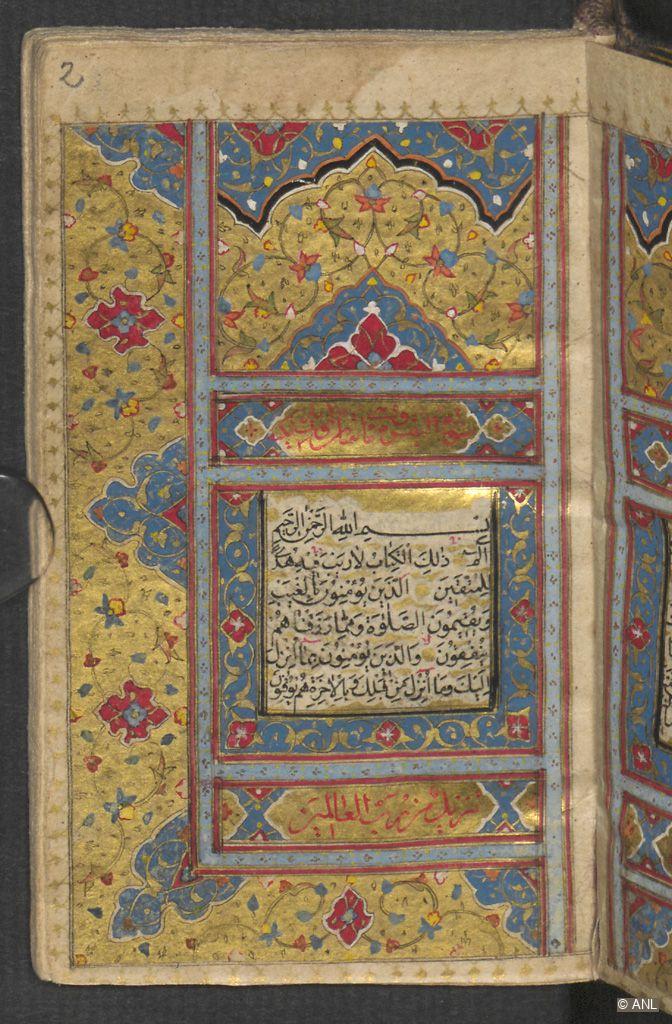 2
بِسْمِ اللهِ الرَّحْمٰنِ الرَّحِيمِ
الم ذٰلِكَ الْكِتَابُ لَا رَيْبَ فِيهِ هُدًى
لِلْمُتَّقِينَ الَّذِينَ يُؤْمِنُونَ بِالْغَيْبِ
وَيُقِيمُونَ الصَّلٰوةَ وَمِمَّا رَزَقْنَاهُمْ
يُنْفِقُونَ وَالَّذِينَ يُؤْمِنُونَ بِمَا أُنْزِلَ
إِلَيْكَ وَمَا أُنْزِلَ مِنْ قَبْلِكَ وَبِالْآخِرَةِ هُمْ يُوقِنُونَ
تنزيل من رب العالمين
© ANL